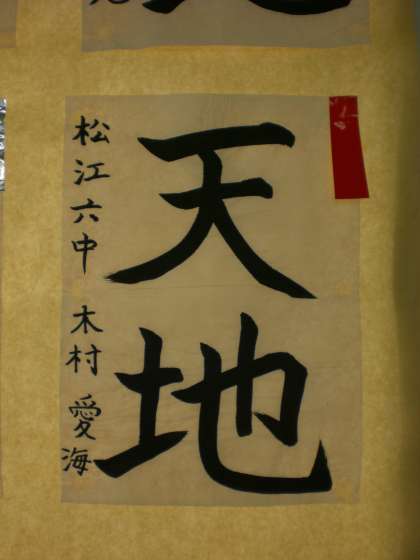 天地
松江六中 木村 愛海